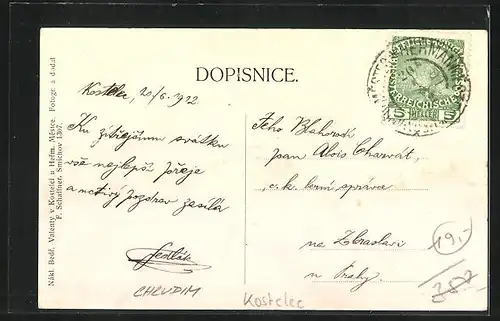 DOPISNICE.
Kostelec, 20/6. 1912
Ku zítřejšímu svátku
vše nejlepší přeje
a uctivý pozdrav zasílá
Sedlák
CHRUDIM
Kostelec
Jeho Blahorodí
pan Alois Charvát,
c. k. berní správce
na Zbraslavi
u Prahy
19,-
Nákl. Bedř. Valenty v Kostelci u Heřm. Městce. Fotogr. a dodal
F. Schaffner, Smíchov 1367.
5 HELLER 5